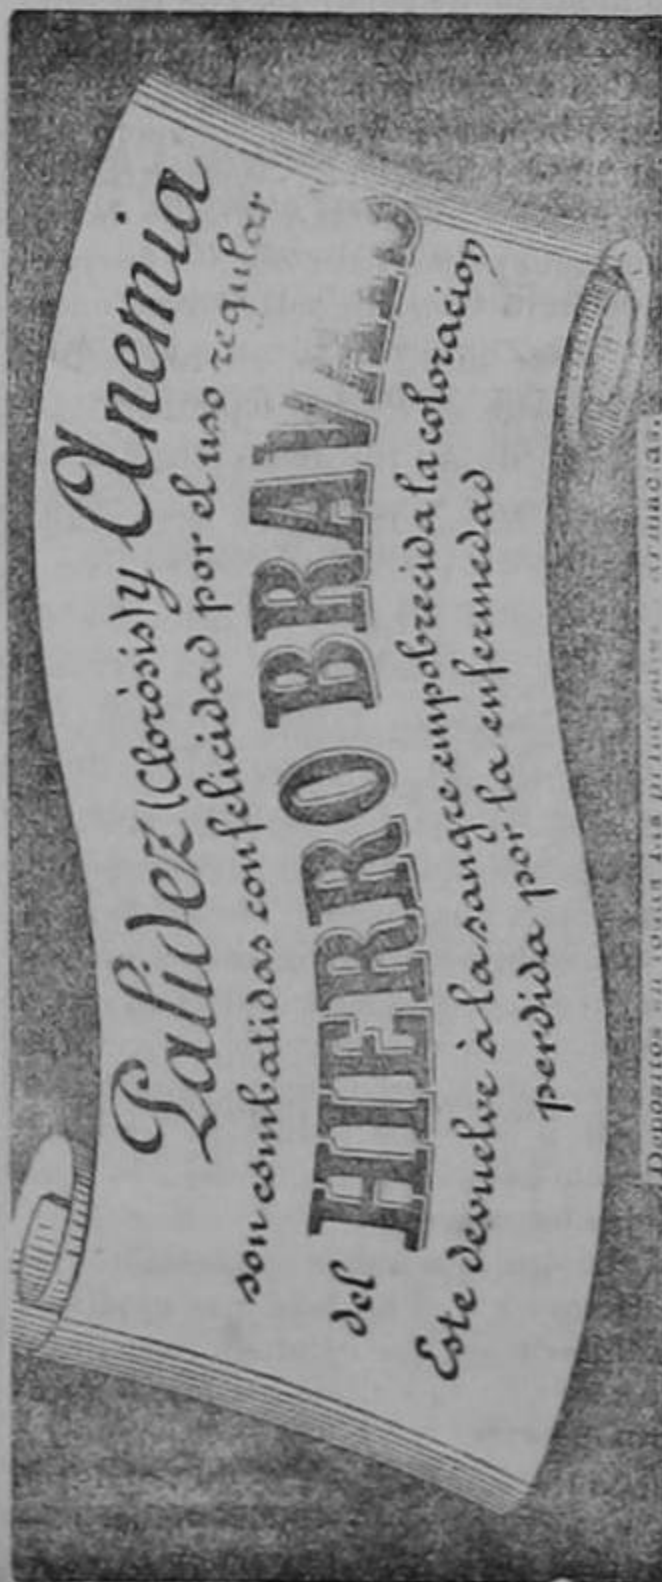 Palidez (Cloròsis) y Anemia
son combatidas con felicidad por el uso regular
del HIERRO BRAVAIS
Este devuelve à la sangre empobrecida la coloracion
perdida por la enfermedad
Depositos en todas las